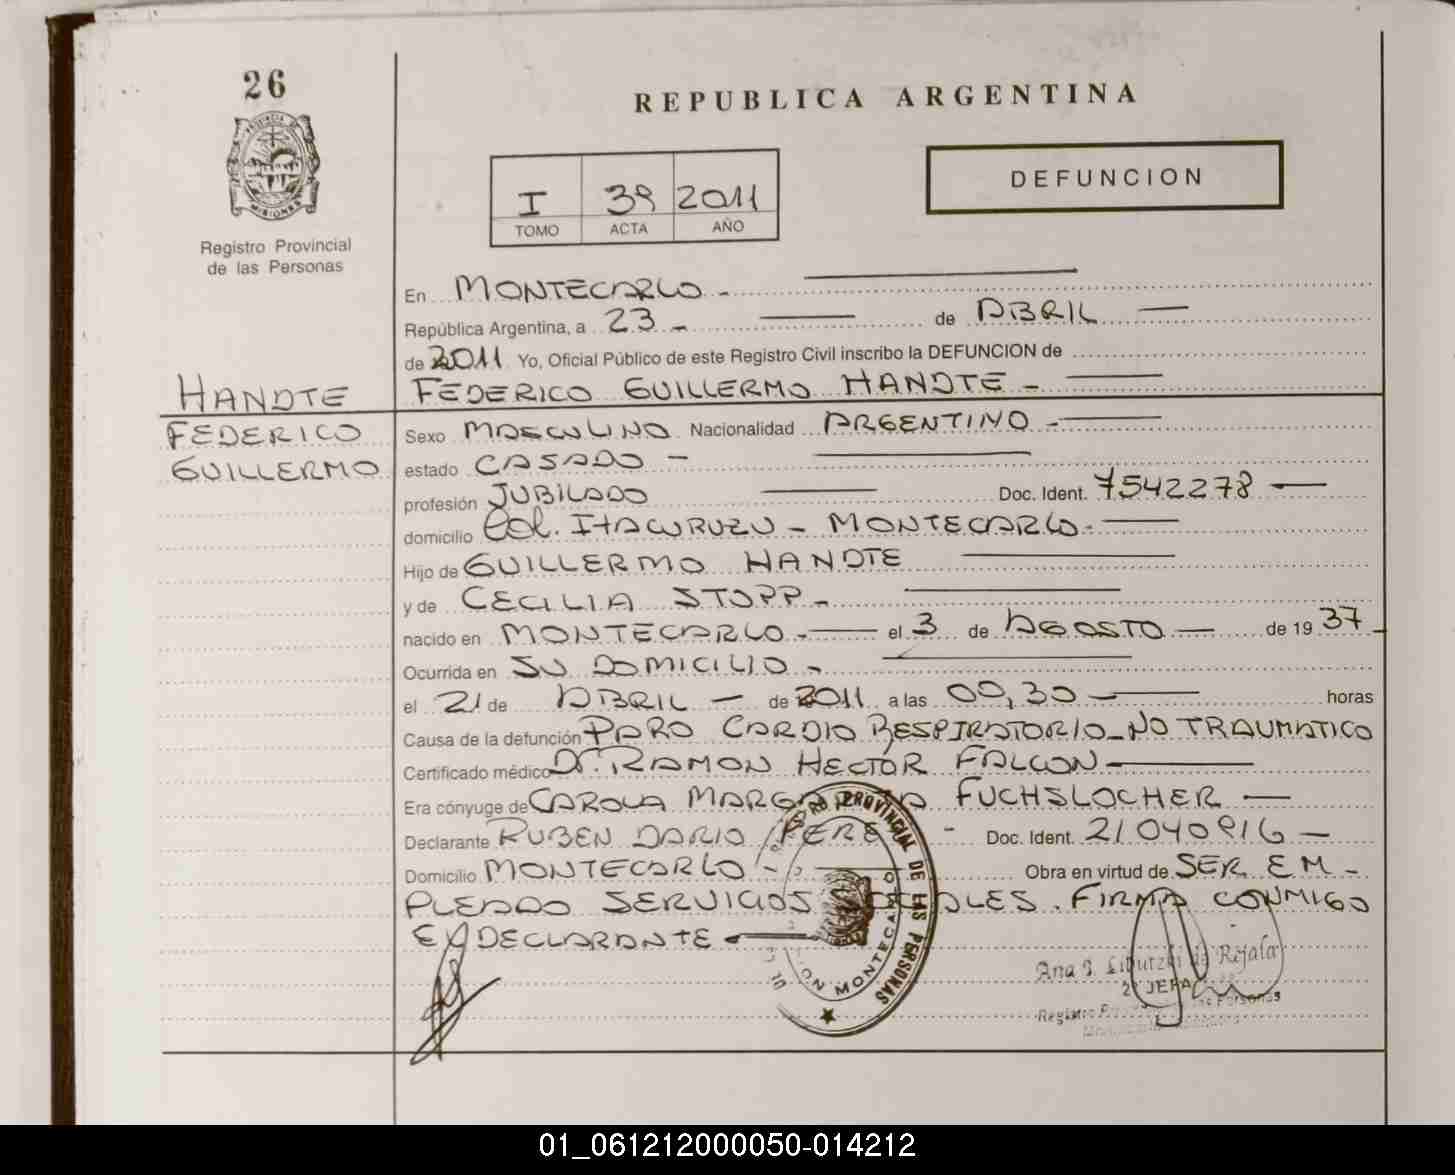 26
PROVINCIA DE
MISIONES
Registro Provincial
de las Personas
REPUBLICA ARGENTINA
I 39 2011
TOMO ACTA AÑO
DEFUNCION
En MONTECARLO -
República Argentina, a 23 - de ABRIL
de 2011 Yo, Oficial Público de este Registro Civil inscribo la DEFUNCION de
HANDTE FEDERICO GUILLERMO HANDTE -
FEDERICO
GUILLERMO
Sexo MASCULINO Nacionalidad ARGENTINO -
estado CASADO -
profesión JUBILADO Doc. Ident. 7542278
domicilio Col. ITACURUZU - MONTECARLO -
Hijo de GUILLERMO HANDTE
y de CECILIA STOPP -
nacido en MONTECARLO - el 3 de AGOSTO de 19 37
Ocurrida en SU DOMICILIO -
el 21 de ABRIL - de 2011 a las 00,30 horas
Causa de la defunción PARO CARDIO RESPIRATORIO - NO TRAUMATICO
Certificado médico Dr. RAMON HECTOR FALCON -
Era cónyuge de CAROLA MARGARITA FUCHSLOCHER
Declarante RUBEN DARIO - Doc. Ident. 21040916
Domicilio MONTECARLO - Obra en virtud de SER EM -
PLEADO SERVICIOS SOCIALES. FIRMA CONMIGO
EL DECLARANTE
PROVINCIAL DE LAS PERSONAS
MONTECARLO
Ana de Rejala
2º JEFA
Registro Personas
01_061212000050-014212